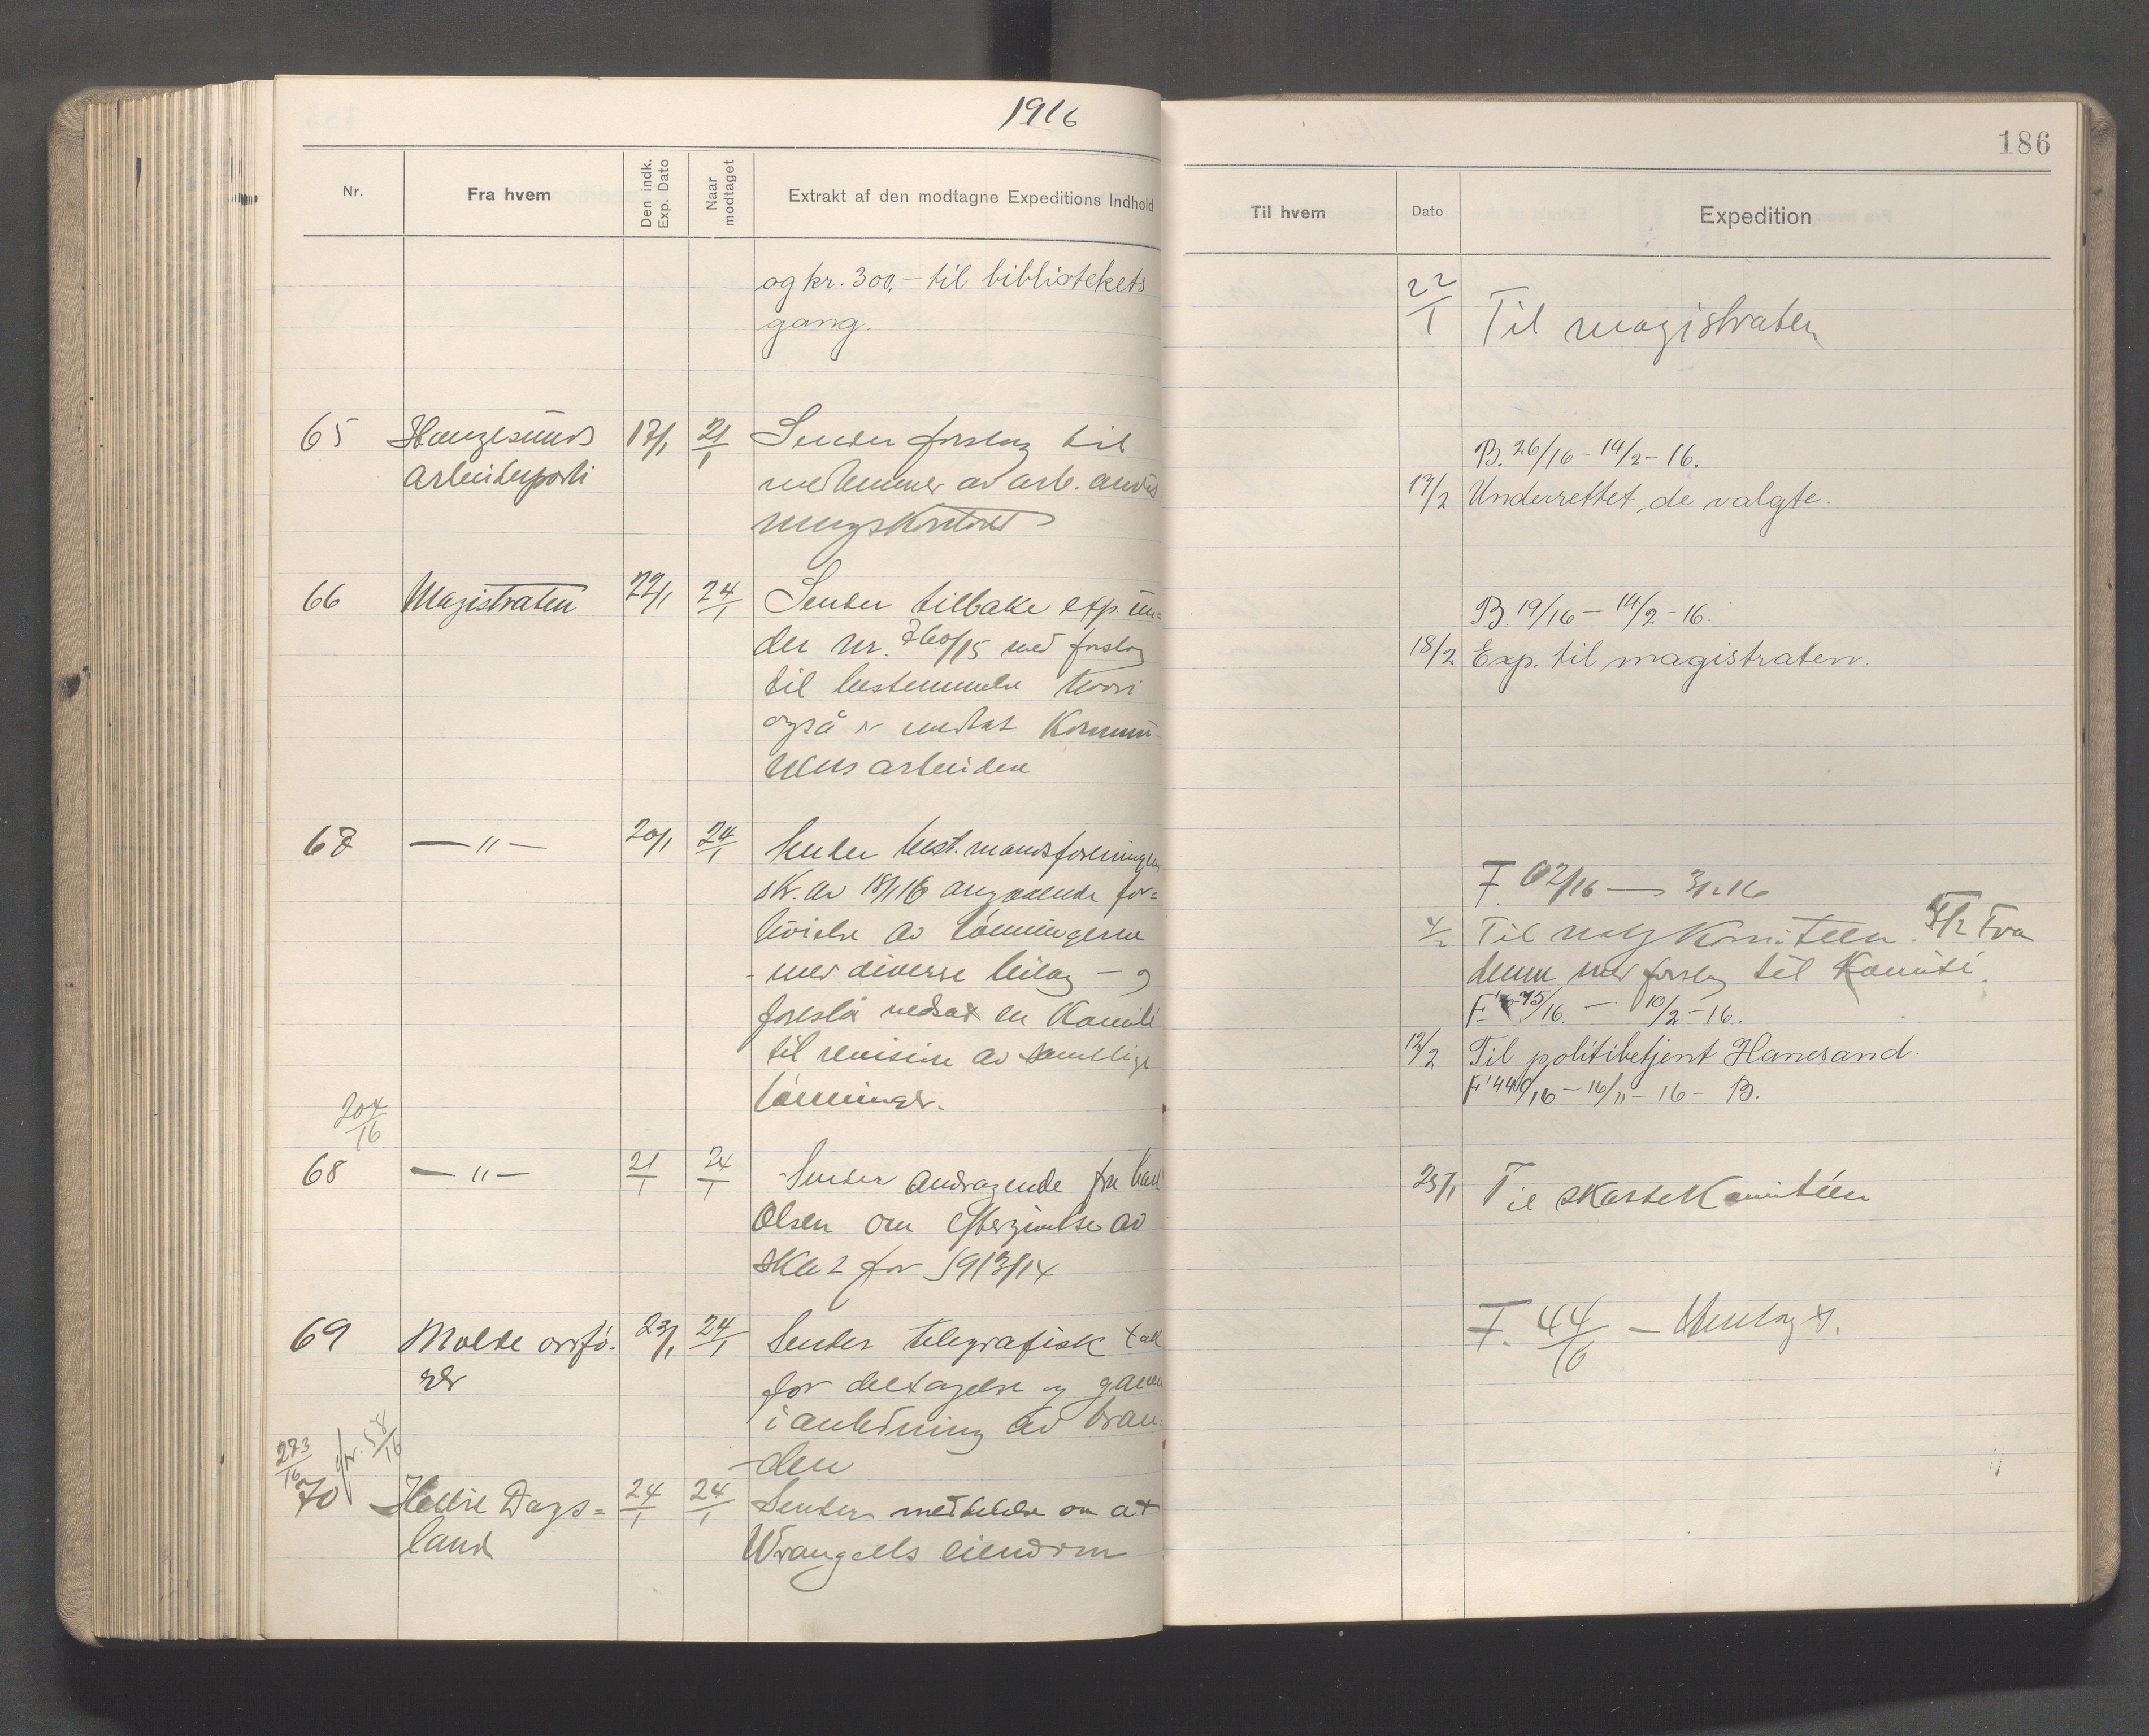 1916
Nr.
Fra hvem
Den indk. Exp. Dato
Naar modtaget
Extrakt af den modtagne Expeditions Indhold
og kr. 300,- til bibliotekets
gang.
65 Haugesunds 17/1 21/1 Sender forslag til
arbeiderparti medlemmer av arb. anvis
ningskontoret
66 Magistraten 22/1 24/1 Sender tilbake exp. un=
der nr. 760/15 med forslag
til bestemmelse hvori
også er medtat Kommu-
nens arbeidere
67 — " — 20/1 24/1 Sender best. mandsforeningens
skr. av 18/1 16 angaaende for=
høielse av lønningerne
- med diverse bilag - og
foreslå nedsat en Komité
til revision av samtlige
lønninger.
204/16
68 — " — 21/1 24/1 Sender andragende fra Karl
Olsen om eftergivelse av
skat for 1913/14
69 Molde ordfø. 23/1 24/1 Sender telegrafisk takk
rer for deltagelse og gaven
i anledning av bran-
-den
273/16 jfr. 58/16
70 Hellie Dags= 24/1 24/1 Sender meddelelse om at
land Wrangells eiendom
186
Til hvem
Dato
Expedition
22/1 Til magistraten
B. 26/16 - 14/2 - 16.
19/2 Underrettet de valgte.
B. 19/16 - 14/2 - 16.
18/2 Exp. til magistraten.
F. 62/16 — 3/2 16
4/2 Til valgkomiteen. 5/2 Fra
denne med forslag til Komité.
F. 75/16. - 10/2 - 16.
12/2 Til politibetjent Hanesand.
F 440/16 - 16/11 - 16 - B.
25/1 Til skattekomitéen
F. 44/16 - Henlagt.